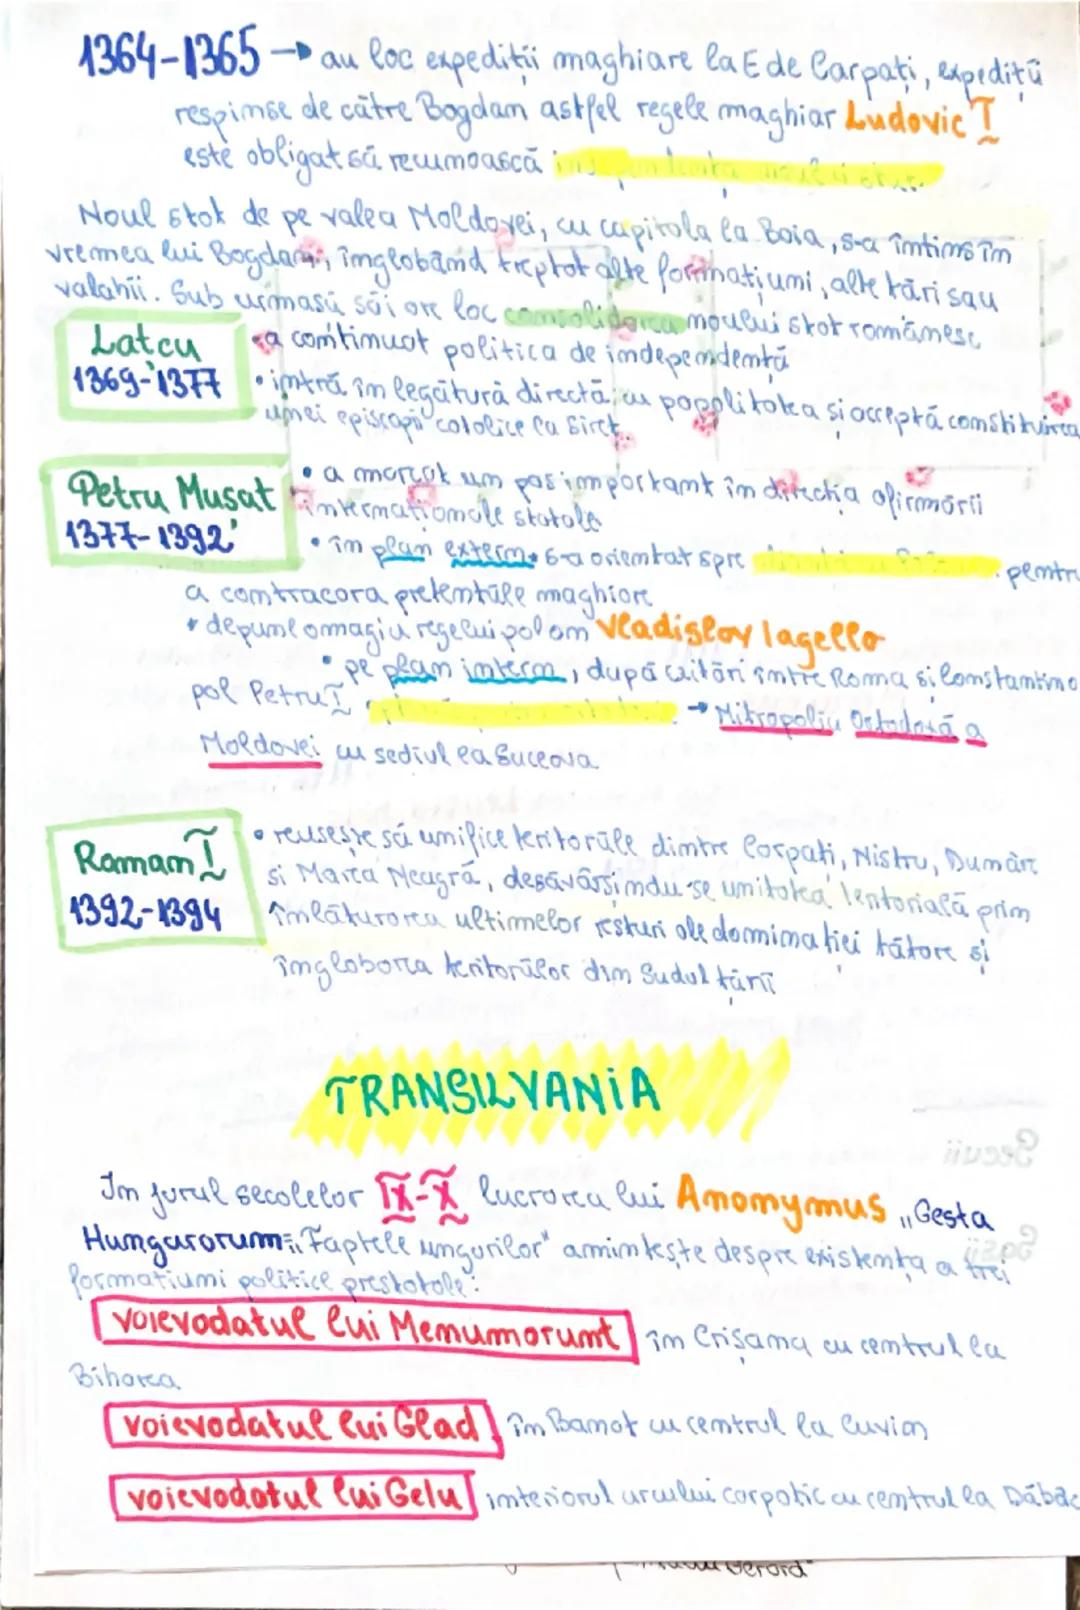 1364-1365 → au loc expediții maghiare la E de Carpați, expediții
respinse de către Bogdan astfel regele maghiar Ludovic I
este obligat să recunoască
Noul stat de pe valea Moldovei, cu capitala la Baia, s-a întins în
vremea lui Bogdan, înglobând treptat alte formațiuni, alte țări sau
valahii. Sub urmașii săi are loc consolidarea noului stat românesc
Latcu
1369-1377
• a continuat politica de independență
• intră în legătură directă cu papalitatea și acceptă constituirea
unei episcopii catolice la Siret.
Petru Musat
1377-1392
• a marcat un pas important în direcția afirmării
internaționale statale
• în plan extern s-a orientat spre pentru
a contracara pretențiile maghiare
• depune omagiu regelui polon Vladislav Iagello
• pe plan intern, după ezitări între Roma si Constantino
pol Petru I → Mitropoliu Ortodoxă a
Moldovei cu sediul la Suceava
Raman I
1392-1394
• reușește să unifice teritoriile dintre Carpați, Nistru, Dunăre
si Marea Neagră, desăvârșindu-se unitatea teritorială prin
înlăturarea ultimelor resturi ale dominației tătare și
înglobarea teritoriilor din Sudul țării
TRANSILVANIA
În jurul secolelor IX-X lucrarea lui Anonymus „Gesta
Hungarorum": „Faptele ungurilor" amintește despre existența a trei
formatiuni politice prestatale:
voievodatul lui Menumorunt în Crișana cu centrul la
Biharea
voievodatul lui Glad în Banat cu centrul la Cuvin
voievodatul lui Gelu interiorul arcului carpatic cu centrul la Dăbâc